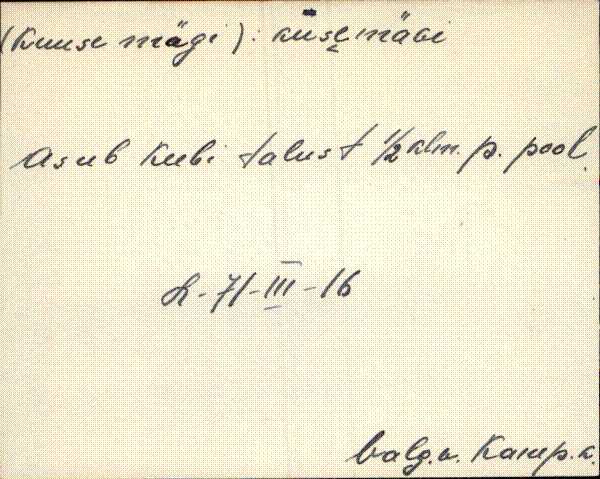 (Kuuse mägi): kūsemäɢi
Asub Kubi talust 1/2 klm. p. pool.
L-71-III-16
Valg.v. Kamp.k.